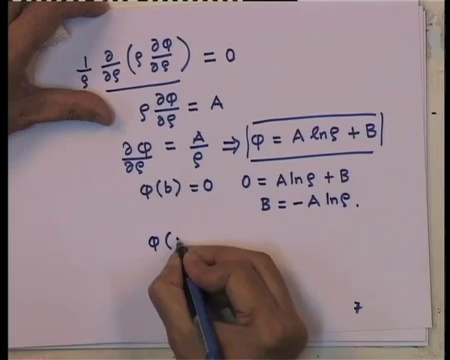 1/ρ ∂/∂ρ (ρ ∂φ/∂ρ) = 0
ρ ∂φ/∂ρ = A
∂φ/∂ρ = A/ρ ⇒ φ = A lnρ + B
φ(b) = 0 0 = A lnρ + B
B = -A lnρ.
φ(
7